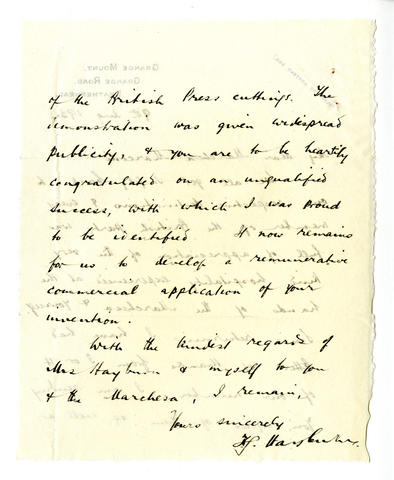 of the British Press cuttings. The
demonstration was given widespread
publicity, & you are to be heartily
congratulated on an unqualified
success, with which I was proud
to be identified. It now remains
for us to develop a remunerative
commercial application of your
invention.
With the kindest regards of
Mrs Hayburn & myself to you
& the Marchesa, I remain,
Yours sincerely
GRANGE MOUNT,
GRANGE ROAD,